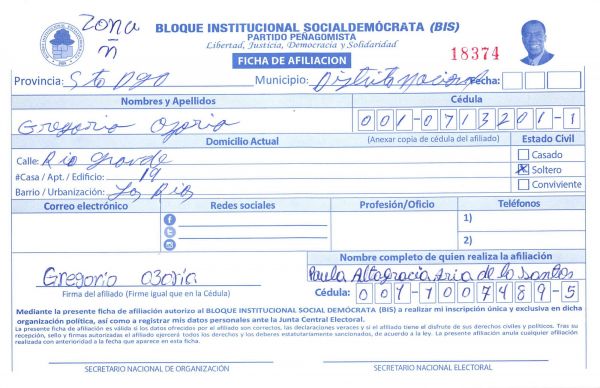 Zona
ñ
BLOQUE INSTITUCIONAL SOCIALDEMÓCRATA (BIS)
PARTIDO PEÑAGOMISTA
Libertad, Justicia, Democracia y Solidaridad
FICHA DE AFILIACION
18374
Provincia: Sto Dgo Municipio: Distrito Nacional Fecha:
Nombres y Apellidos Cédula
Gregorio Ozoria 001-0713201-1
Domicilio Actual (Anexar copia de cédula del afiliado) Estado Civil
Calle: Rio Grande Casado
#Casa / Apt. / Edificio: 19 X Soltero
Barrio / Urbanización: Los Rios Conviviente
Correo electrónico Redes sociales Profesión/Oficio Teléfonos
1)
2)
Nombre completo de quien realiza la afiliación
Gregorio Ozoria Paula Altagracia Aria de lo Santos
Firma del afiliado (Firme igual que en la Cédula) Cédula: 001-1007489-5
Mediante la presente ficha de afiliación autorizo al BLOQUE INSTITUCIONAL SOCIAL DEMÓCRATA (BIS) a realizar mi inscripción única y exclusiva en dicha
organización política, así como a registrar mis datos personales ante la Junta Central Electoral.
La presente ficha de afiliación es válida si los datos ofrecidos por el afiliado son correctos, las declaraciones veraces y si el afiliado tiene el disfrute de sus derechos civiles y políticos. Tras su
recepción, sello y firmas autorizadas el afiliado ejercerá todos los derechos y los deberes estatutariamente sancionados, de acuerdo a la ley. La presente afiliación anula cualquier afiliación
realizada con anterioridad a la fecha que aparece en esta ficha.
SECRETARIO NACIONAL DE ORGANIZACIÓN SECRETARIO NACIONAL ELECTORAL